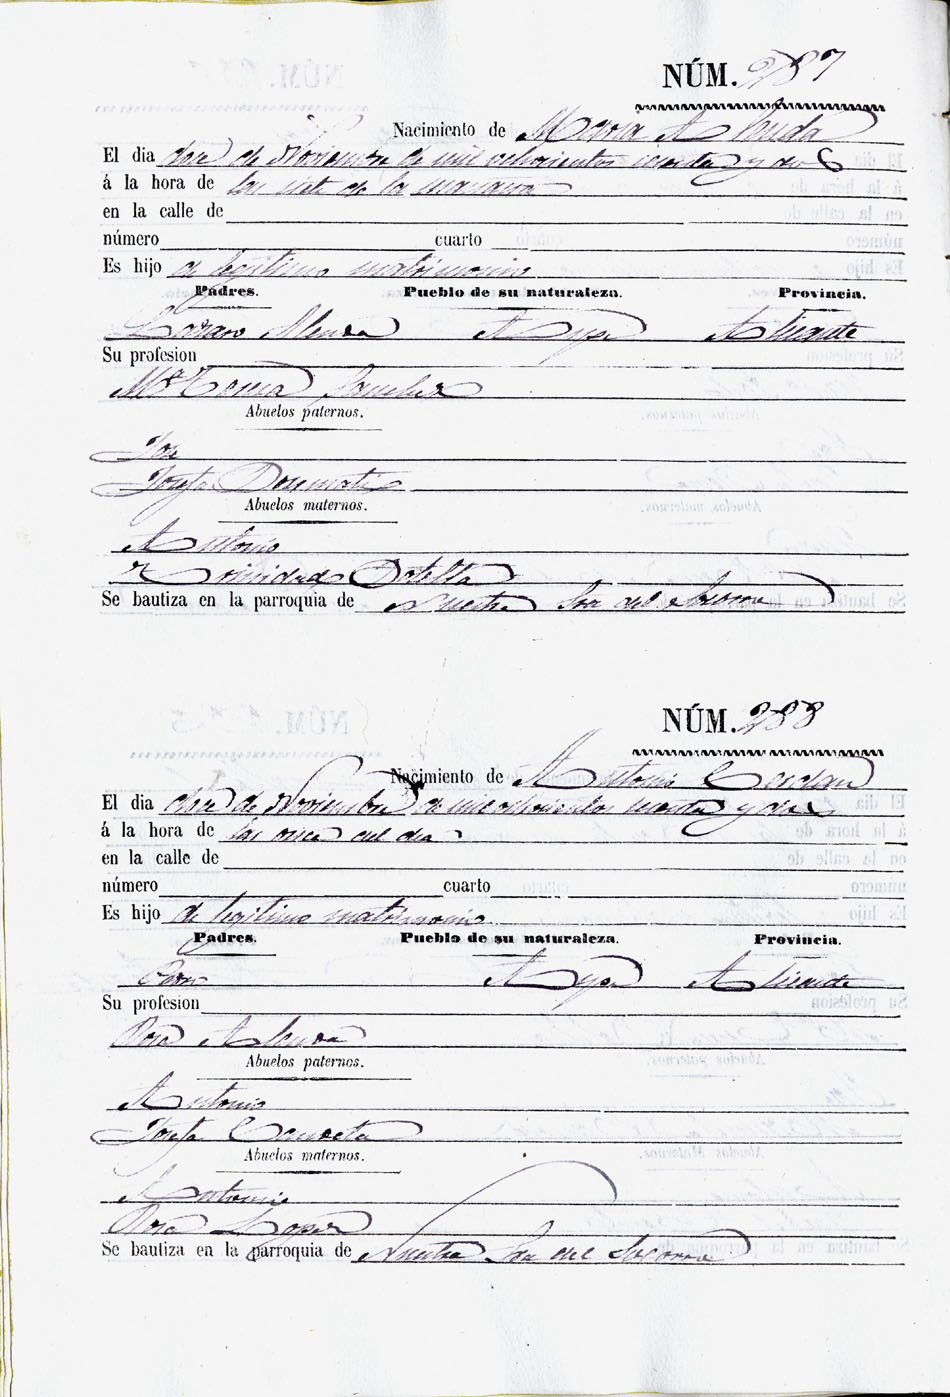 NÚM. 287
Nacimiento de Maria Alenda
El dia doce de Noviembre de mil ochocientos secenta y dos
á la hora de las siete de la mañana
en la calle de
número cuarto
Es hijo de legitimo matrimonio
Padres. Pueblo de su naturaleza. Provincia.
Lazaro Alenda Aspe Alicante
Su profesion
Mª Tomasa Sanchez
Abuelos paternos.
Jose
Josefa
Abuelos maternos.
Antonio
Trinidad Botella
Se bautiza en la parroquia de Nuestra Sra del Socorro
NÚM. 288
Nacimiento de Antonio Cerdan
El dia doce de Noviembre de mil ochocientos secenta y dos
á la hora de las once del dia
en la calle de
número cuarto
Es hijo de legitimo matrimonio
Padres. Pueblo de su naturaleza. Provincia.
Aspe Alicante
Su profesion
Rosa Alenda
Abuelos paternos.
Antonio
Josefa
Abuelos maternos.
Antonio
Rosa Lopez
Se bautiza en la parroquia de Nuestra Sra del Socorro